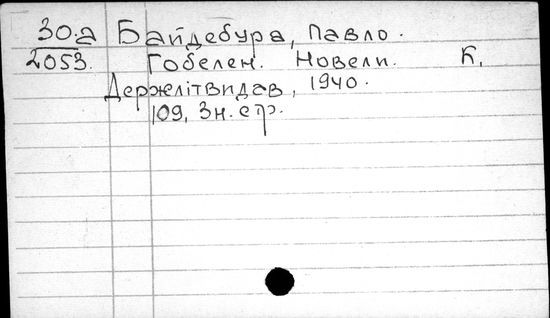 30.а Байдебура, Павло.
2053. Гобелен. Новели. К,
Держлітвидав, 1940.
109, 3н. стр.